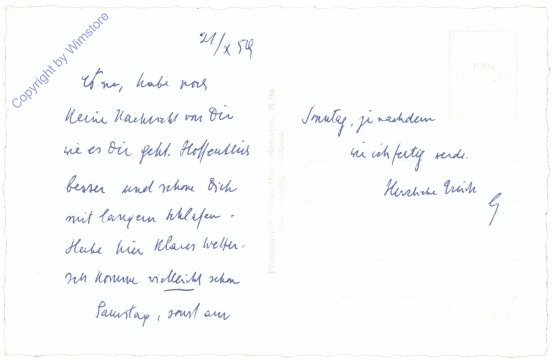 21/X 59
habe noch
keine Nachricht von Dir
wie es Dir geht. Hoffentlich
besser und schone Dich
mit langem Schlafen.
Habe hier klares Wetter.
Ich komme vielleicht schon
Samstag, sonst am
Sonntag, je nachdem
wie ich fertig werde.
Herzliche
Copyright by Wimstore